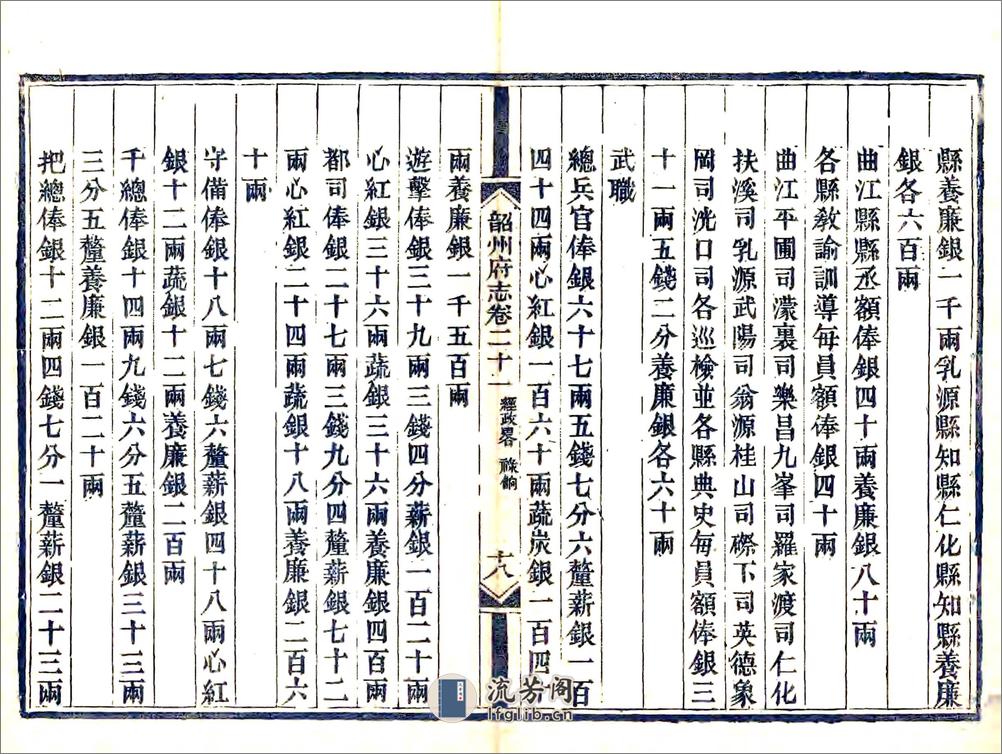 縣養廉銀一千兩乳源縣知縣仁化縣知縣養廉
銀各六百兩
曲江縣縣丞額俸銀四十兩養廉銀八十兩
各縣教諭訓導每員額俸銀四十兩
曲江平圃司濛裏司樂昌九峯司羅家渡司仁化
扶溪司乳源武陽司翁源桂山司磜下司英德象
岡司洸口司各巡檢並各縣典史每員額俸銀三
十一兩五錢二分養廉銀各六十兩
武職
總兵官俸銀六十七兩五錢七分六釐薪銀一百
四十四兩心紅銀一百六十兩蔬炭銀一百四十
韶州府志卷二十一
經政畧 祿餉
十八
兩養廉銀一千五百兩
遊擊俸銀三十九兩三錢四分薪銀一百二十兩
心紅銀三十六兩蔬銀三十六兩養廉銀四百兩
都司俸銀二十七兩三錢九分四釐薪銀七十二
兩心紅銀二十四兩蔬銀十八兩養廉銀二百六
十兩
守備俸銀十八兩七錢六釐薪銀四十八兩心紅
銀十二兩蔬銀十二兩養廉銀二百兩
千總俸銀十四兩九錢六分五釐薪銀三十三兩
三分五釐養廉銀一百二十兩
把總俸銀十二兩四錢七分一釐薪銀二十三兩
流芳阁
lfglib.cn